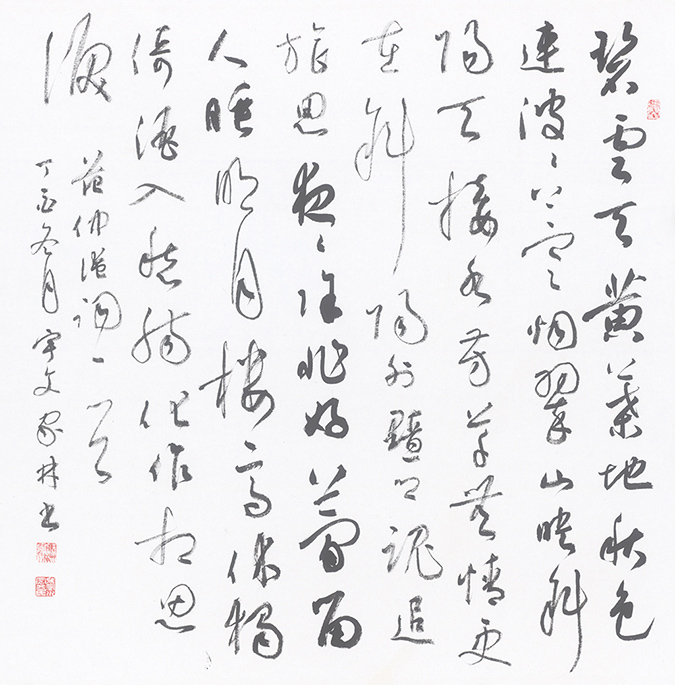 碧雲天黄葉地秋色
連波〻上寒烟翠山映斜
陽天接水芳草無情更
在斜陽外黯鄉魂追
旅思夜〻除非好夢留
人睡明月樓高休獨
倚酒入愁腸化作相思
淚
范仲淹詞一首
丁酉冬月宇文家林書